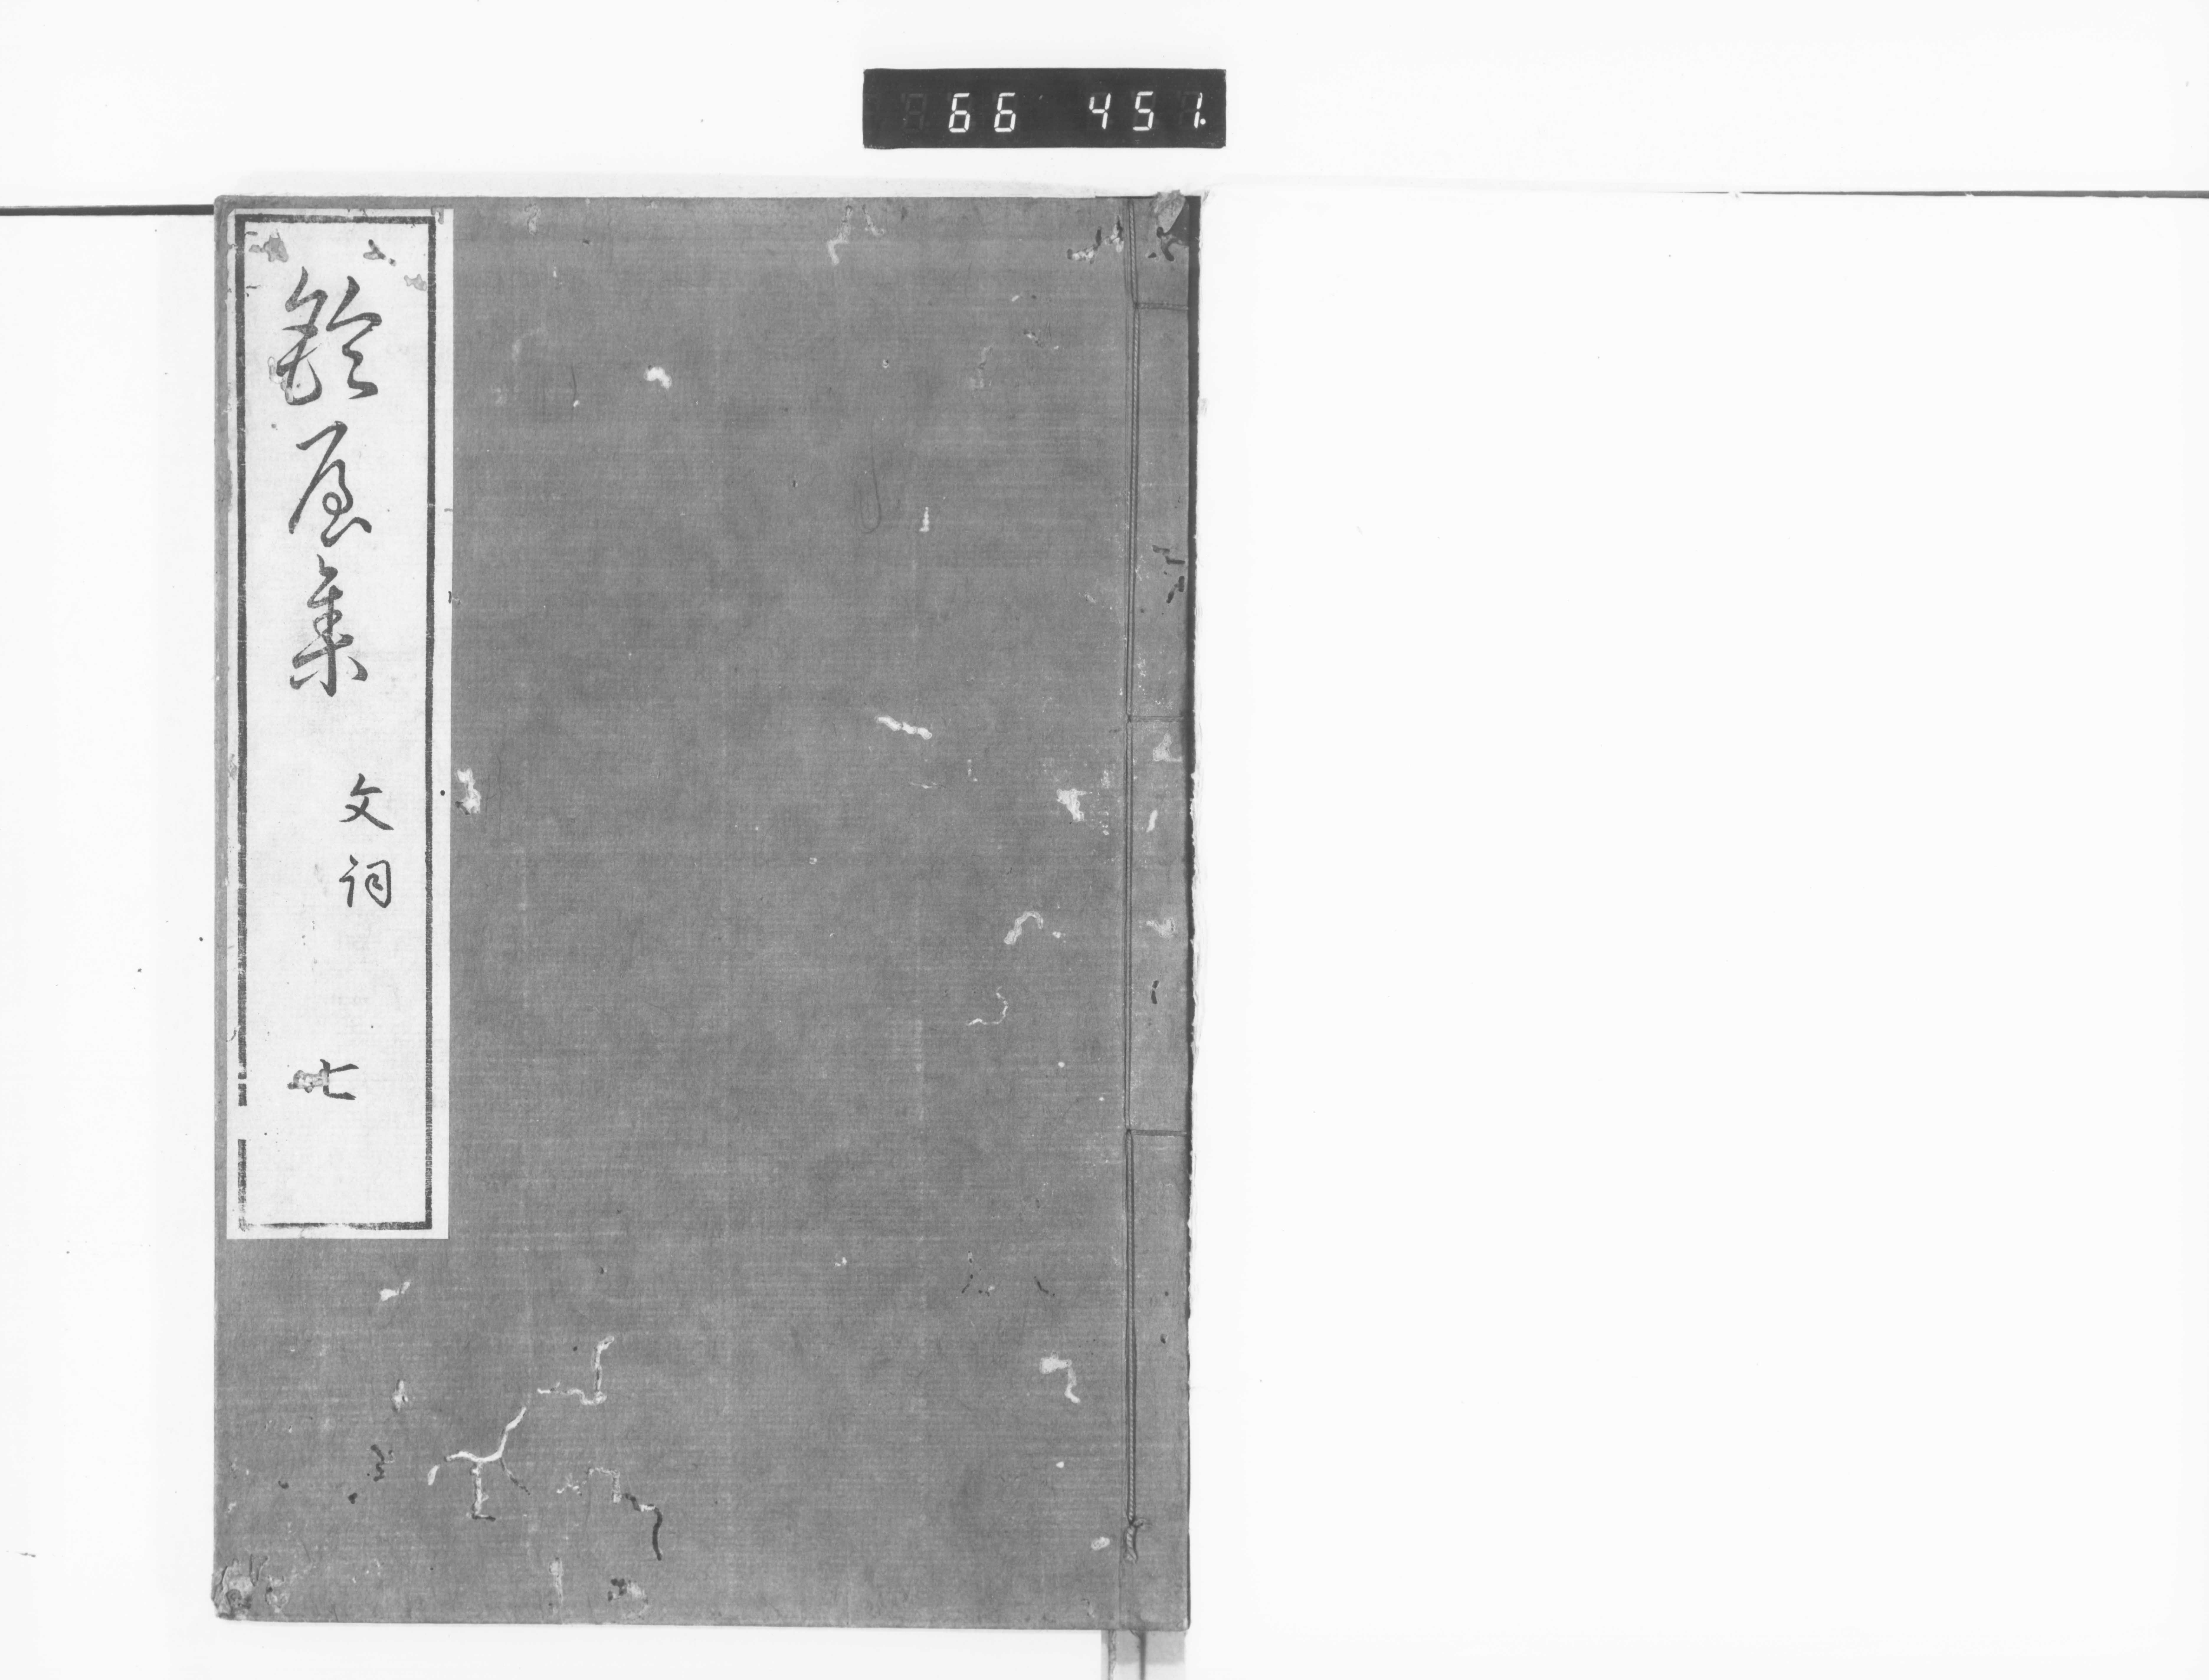 66 451.
鈴屋集
文詞
七